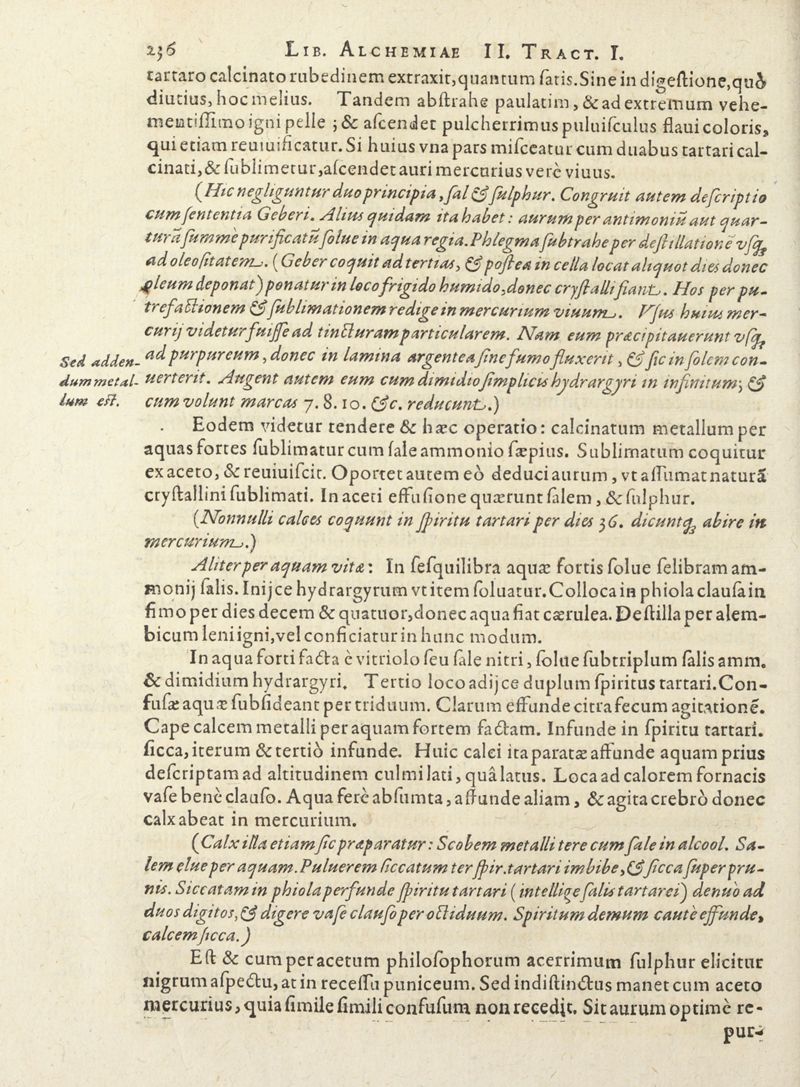 236 LIB. ALCHEMIAE II. TRACT. I.
tartaro calcinato rubedinem extraxit, quantum satis. Sine in digestione, quò
diutius, hoc melius. Tandem abstrahe paulatim, & ad extremum vehe-
mentissimo igni pelle ; & ascendet pulcherrimus puluisculus flaui coloris,
qui etiam reuiuificatur. Si huius vna pars misceatur cum duabus tartari cal-
cinati, & sublimetur, ascendet auri mercurius verè viuus.
(Hic negliguntur duo principia, sal & sulphur. Congruit autem descriptio
cum sententia Geberi. Alius quidam ita habet : aurum per antimoniū aut quar-
turā summè purificatū solue in aqua regia. Phlegma subtrahe per destillationē vsq;
ad oleositatem. (Geber coquit ad tertias, & postea in cella locat aliquot dies donec
oleum deponat) ponatur in loco frigido humido, donec crystalli fiant. Hos per pu-
trefactionem & sublimationem redige in mercurium viuum. Vsus huius mer-
curij videtur fuisse ad tincturam particularem. Nam eum præcipitauerunt vsq;
ad purpureum, donec in lamina argentea sine fumo fluxerit, & sic in solem con-
Sed adden-
dum metal-
lum est.
uerterit. Augent autem eum cum dimidio simplicis hydrargyri in infinitum; &
cum volunt marcas 7. 8. 10. &c. reducunt.)
Eodem videtur tendere & hæc operatio : calcinatum metallum per
aquas fortes sublimatur cum sale ammonio sæpius. Sublimatum coquitur
ex aceto, & reuiuiscit. Oportet autem eò deduci aurum, vt assumat naturā
crystallini sublimati. In aceti effusione quærunt salem, & sulphur.
(Nonnulli calces coquunt in spiritu tartari per dies 36. dicuntq; abire in
mercurium.)
Aliter per aquam vitæ : In sesquilibra aquæ fortis solue selibram am-
monij salis. Inijce hydrargyrum vt item soluatur. Colloca in phiola clausa in
fimo per dies decem & quatuor, donec aqua fiat cærulea. Destilla per alem-
bicum leni igni, vel conficiatur in hunc modum.
In aqua forti facta è vitriolo seu sale nitri, solue subtriplum salis amm.
& dimidium hydrargyri. Tertio loco adijce duplum spiritus tartari. Con-
fusæ aquæ subsideant per triduum. Clarum effunde citra fecum agitationē.
Cape calcem metalli per aquam fortem factam. Infunde in spiritu tartari.
sicca, iterum & tertiò infunde. Huic calci ita paratæ affunde aquam prius
descriptam ad altitudinem culmi lati, quâ latus. Loca ad calorem fornacis
vase benè clauso. Aqua ferè absumta, affunde aliam, & agita crebrò donec
calx abeat in mercurium.
(Calx illa etiam sic præparatur : Scobem metalli tere cum sale in alcool. Sa-
lem elue per aquam. Puluerem siccatum ter spir. tartari imbibe, & sicca super pru-
nis. Siccatam in phiola perfunde spiritu tartari (intellige salis tartarei) denuò ad
duos digitos, & digere vase clauso per octiduum. Spiritum demum cautè effunde,
calcem sicca.)
Est & cum per acetum philosophorum acerrimum sulphur elicitur
nigrum aspectu, at in recessu puniceum. Sed indistinctus manet cum aceto
mercurius, quia simile simili confusum non recedit. Sit aurum optimè re-
pur-